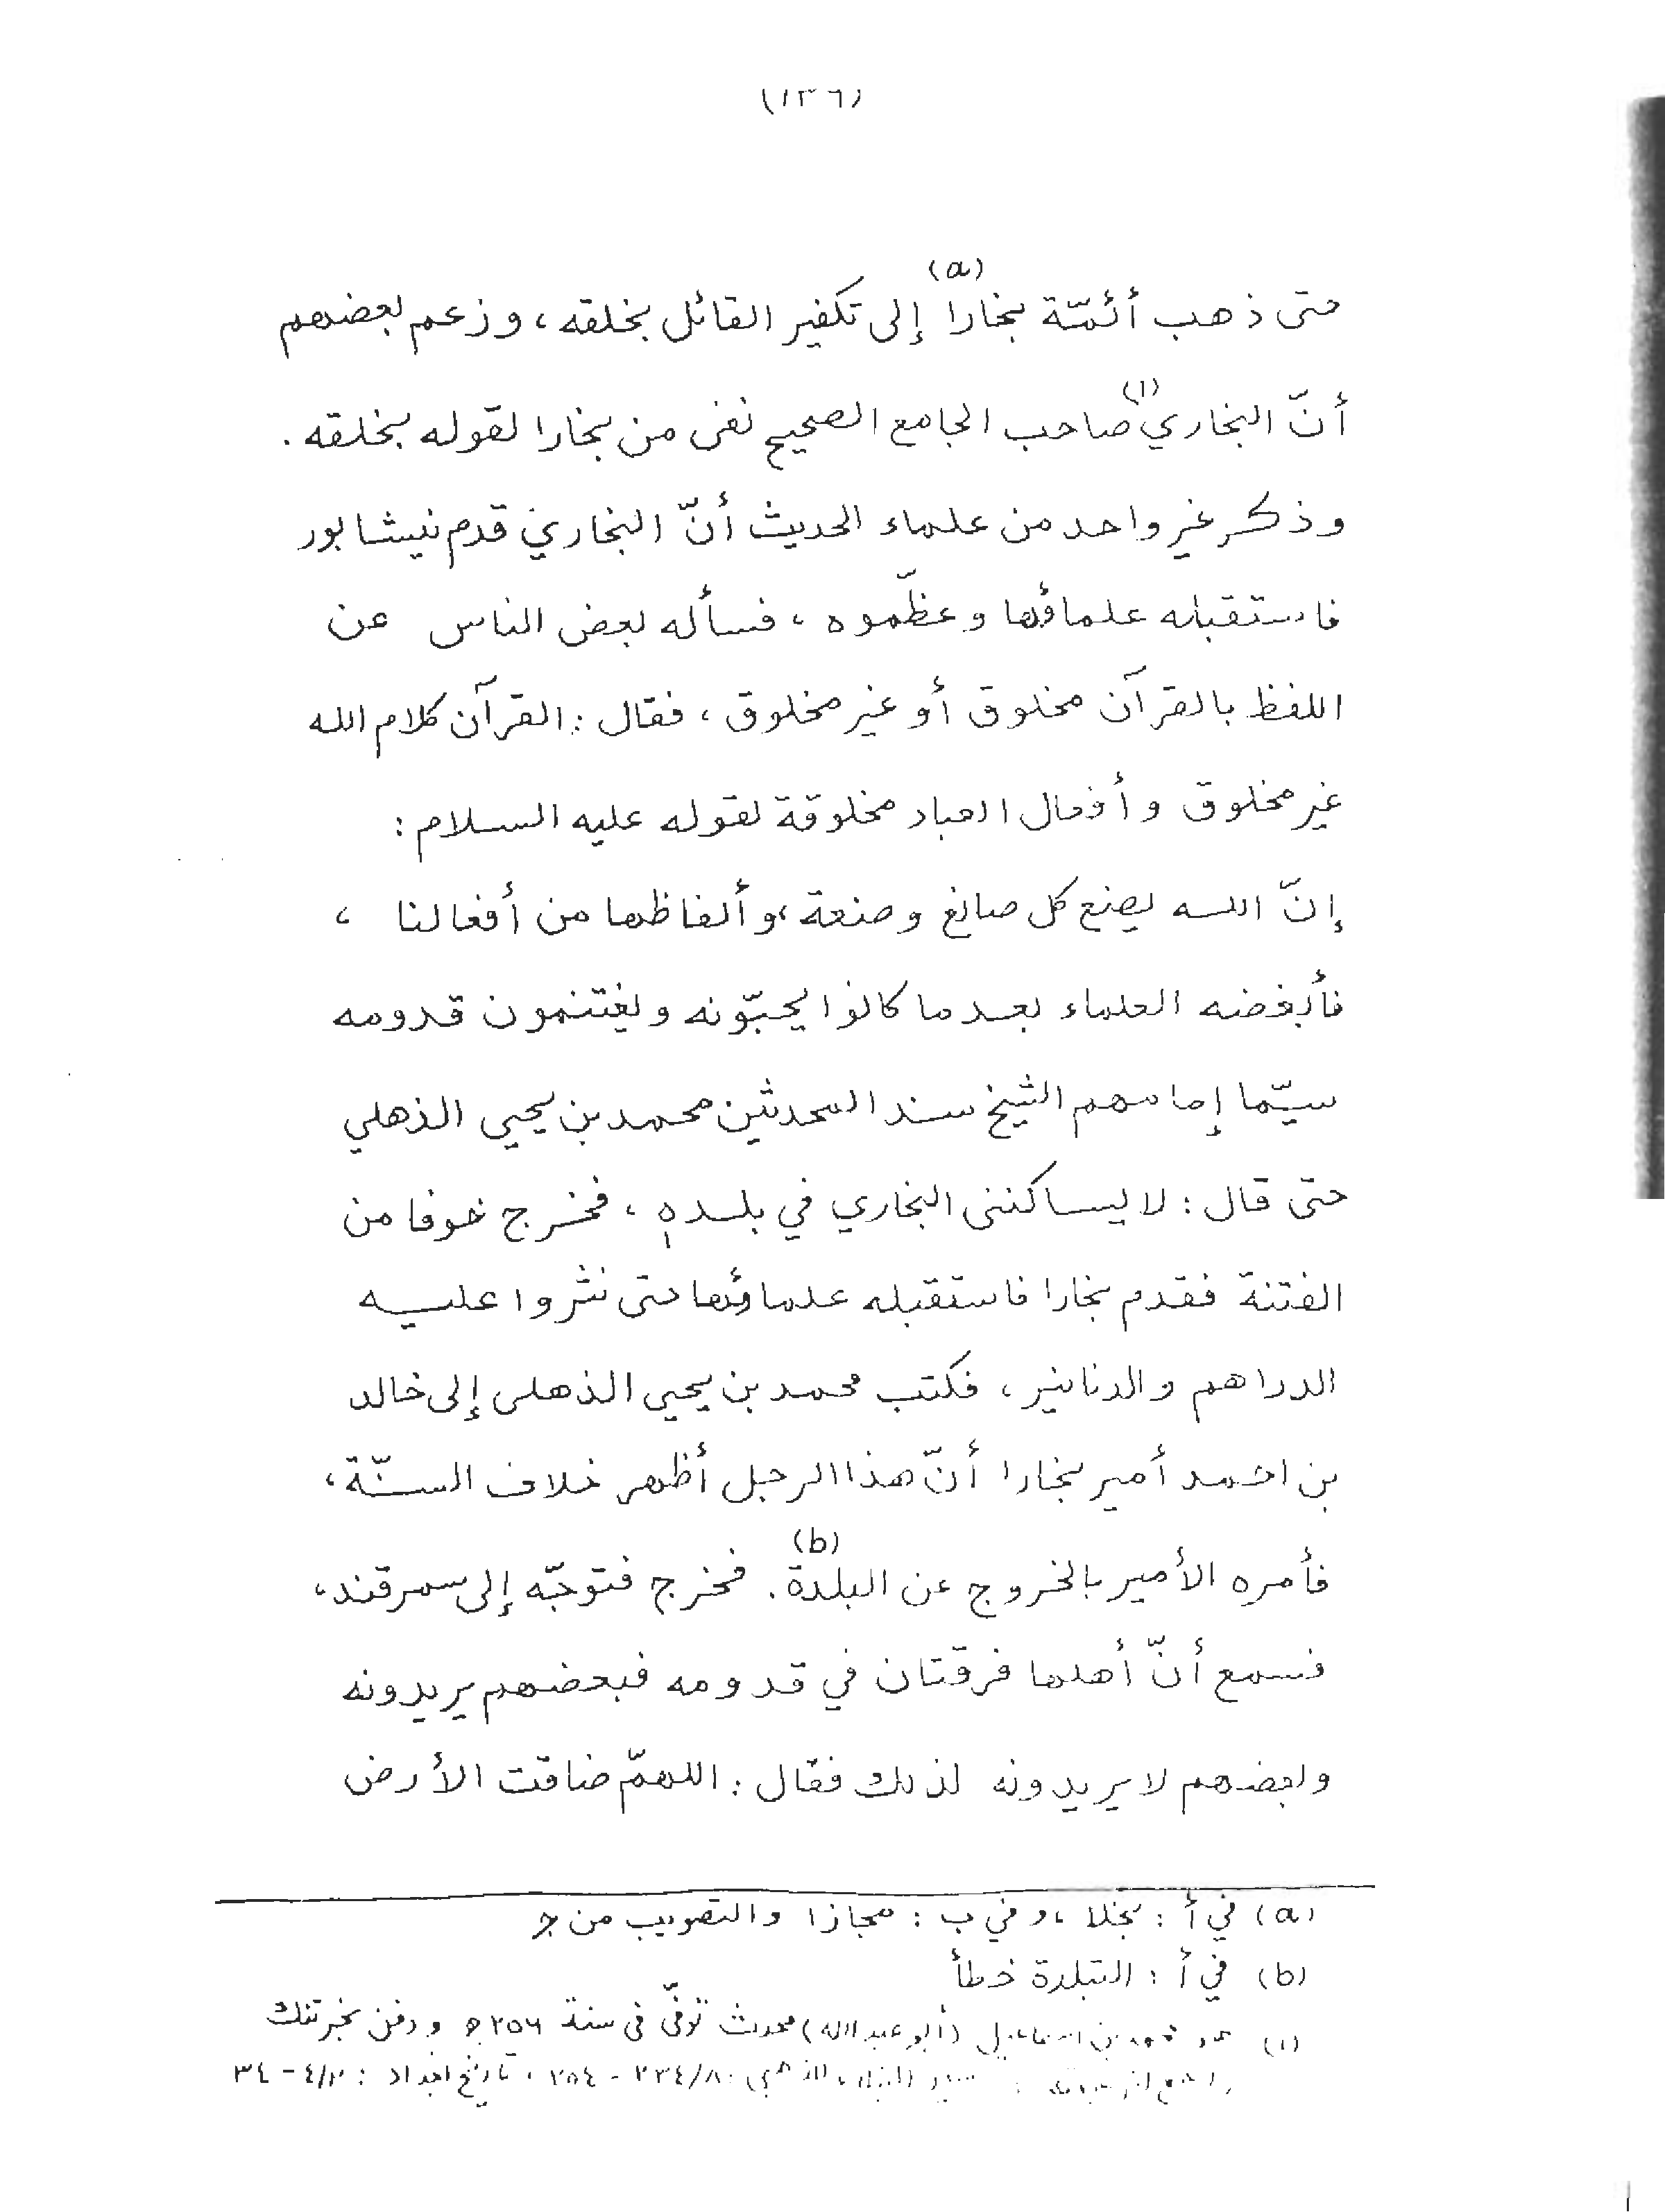 (١٣٦)
حتى ذهب أئمّة بخارا(a) إلى تكفير القائل بخلقه، وزعم بعضهم
أنّ البخاري(١) صاحب الجامع الصحيح نفى من بخارا لقوله بخلقه.
وذكر غير واحد من علماء الحديث أنّ البخاري قدم نيشابور
فاستقبله علماؤها وعظّموه، فسأله بعض الناس عن
اللفظ بالقرآن مخلوق أو غير مخلوق، فقال: القرآن كلام الله
غير مخلوق وأفعال العباد مخلوقة لقوله عليه السلام:
إنّ الله يصنع كل صانع وصنعة، وألفاظها من أفعالنا،
فأبغضه العلماء بعد ما كانوا يحبّونه ويغتنمون قدومه
سيّما إمامهم الشيخ سند المحدثين محمد بن يحيى الذهلي
حتى قال: لا يساكننى البخاري في بلده، فخرج خوفا من
الفتنة فقدم بخارا فاستقبله علماؤها حتى نثروا عليه
الدراهم والدنانير، فكتب محمد بن يحيى الذهلى إلى خالد
بن احمد أمير بخارا أنّ هذا الرجل أظهر خلاف السنّة،
فأمره الأمير بالخروج عن البلدة(b). فخرج فتوجّه إلى سمرقند،
فسمع أنّ أهلها فرقتان في قدومه فبعضهم يريدونه
وبعضهم لا يريدونه لذلك فقال: اللهمّ ضاقت الأرض
(a) في أ: بخلا، وفي ب: مجازا والتصويب من جـ
(b) في أ: التبلدة خطأ
(١) محمد بن اسماعيل (أبو عبد الله) محدث توفّى فى سنة ٢٥٦ هـ ودفن بخرتنك
راجع الذهبي ٢٣٤/٨ - ٢٥٤، تاريخ بغداد: ٤/٢ - ٣٤